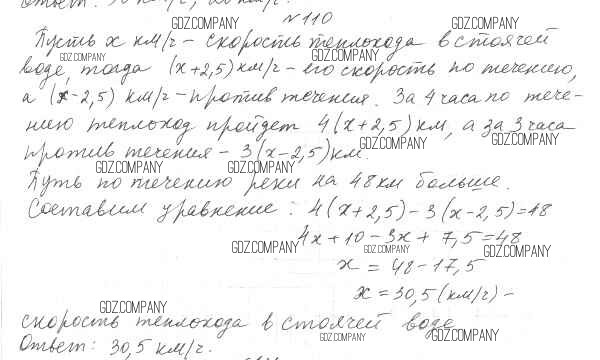 №110
Пусть x км/ч – скорость теплохода в стоячей
воде, тогда (x+2,5) км/ч – его скорость по течению,
а (x-2,5) км/ч – против течения. За 4 часа по тече-
нию теплоход пройдет 4(x+2,5) км, а за 3 часа
против течения – 3(x-2,5) км.
Путь по течению реки на 48 км больше.
Составим уравнение: 4(x+2,5)-3(x-2,5)=48
4x+10-3x+7,5=48
x=48-17,5
x=30,5 (км/ч) –
скорость теплохода в стоячей воде
Ответ: 30,5 км/ч.
GDZ.COMPANY
GDZ.COMPANY
GDZ.COMPANY
GDZ.COMPANY
GDZ.COMPANY
GDZ.COMPANY
GDZ.COMPANY
GDZ.COMPANY
GDZ.COMPANY
GDZ.COMPANY
GDZ.COMPANY
GDZ.COMPANY
GDZ.COMPANY
GDZ.COMPANY